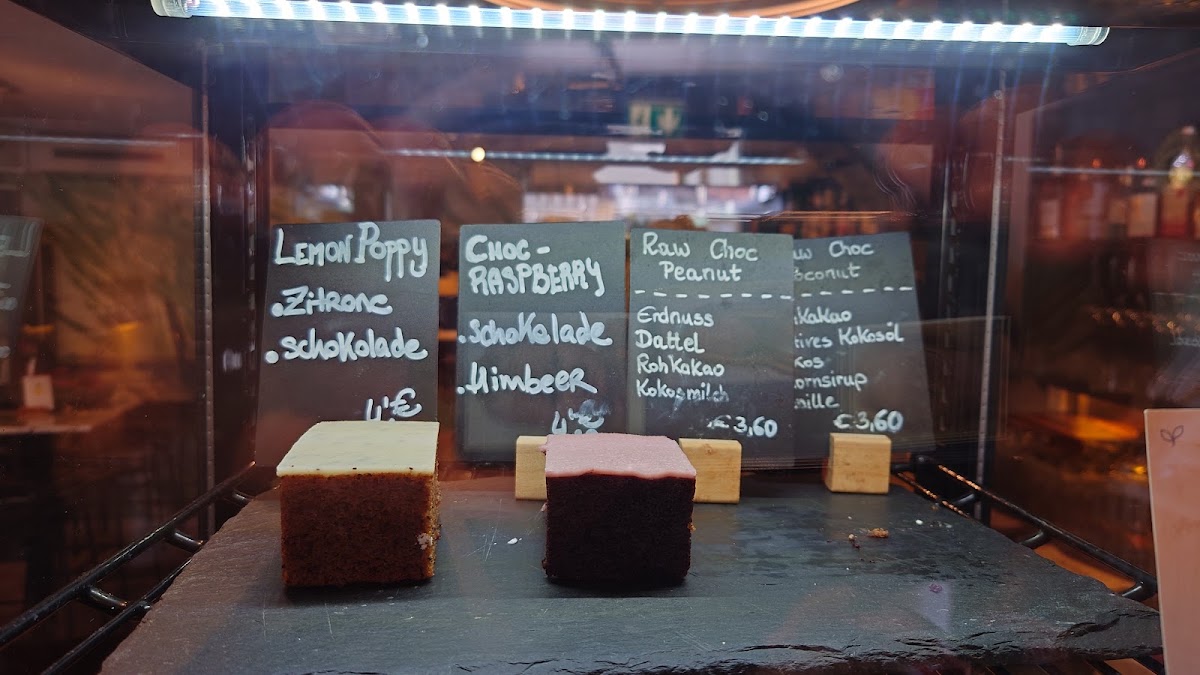 LEMON POPPY
• Zitrone
• schokolade
4'€
CHOC-
RASPBERRY
• schokolade
• Himbeer
Raw Choc
Peanut
Erdnuss
Dattel
Rohkakao
Kokosmilch
€3,60
Choc
kakao
Kokosöl
€3,60